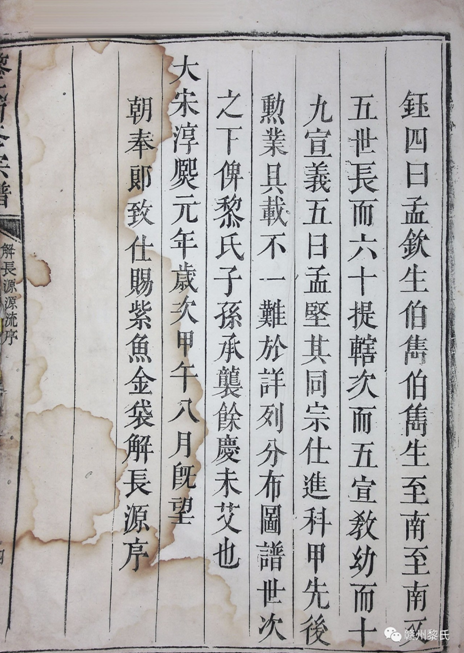 鈺四曰孟欽生伯雋伯雋生至南至南
五世長而六十提轄次而五宣教幼而十
九宣義五曰孟堅其同宗仕進科甲先後
勲業具載不一難於詳列分布圖譜世次
之下俾黎氏子孫承襲餘慶未艾也
大宋淳熈元年歲次甲午八月旣望
朝奉郎致仕賜紫魚金袋解長源序
宗譜
解長源源流序
嬌州黎氏